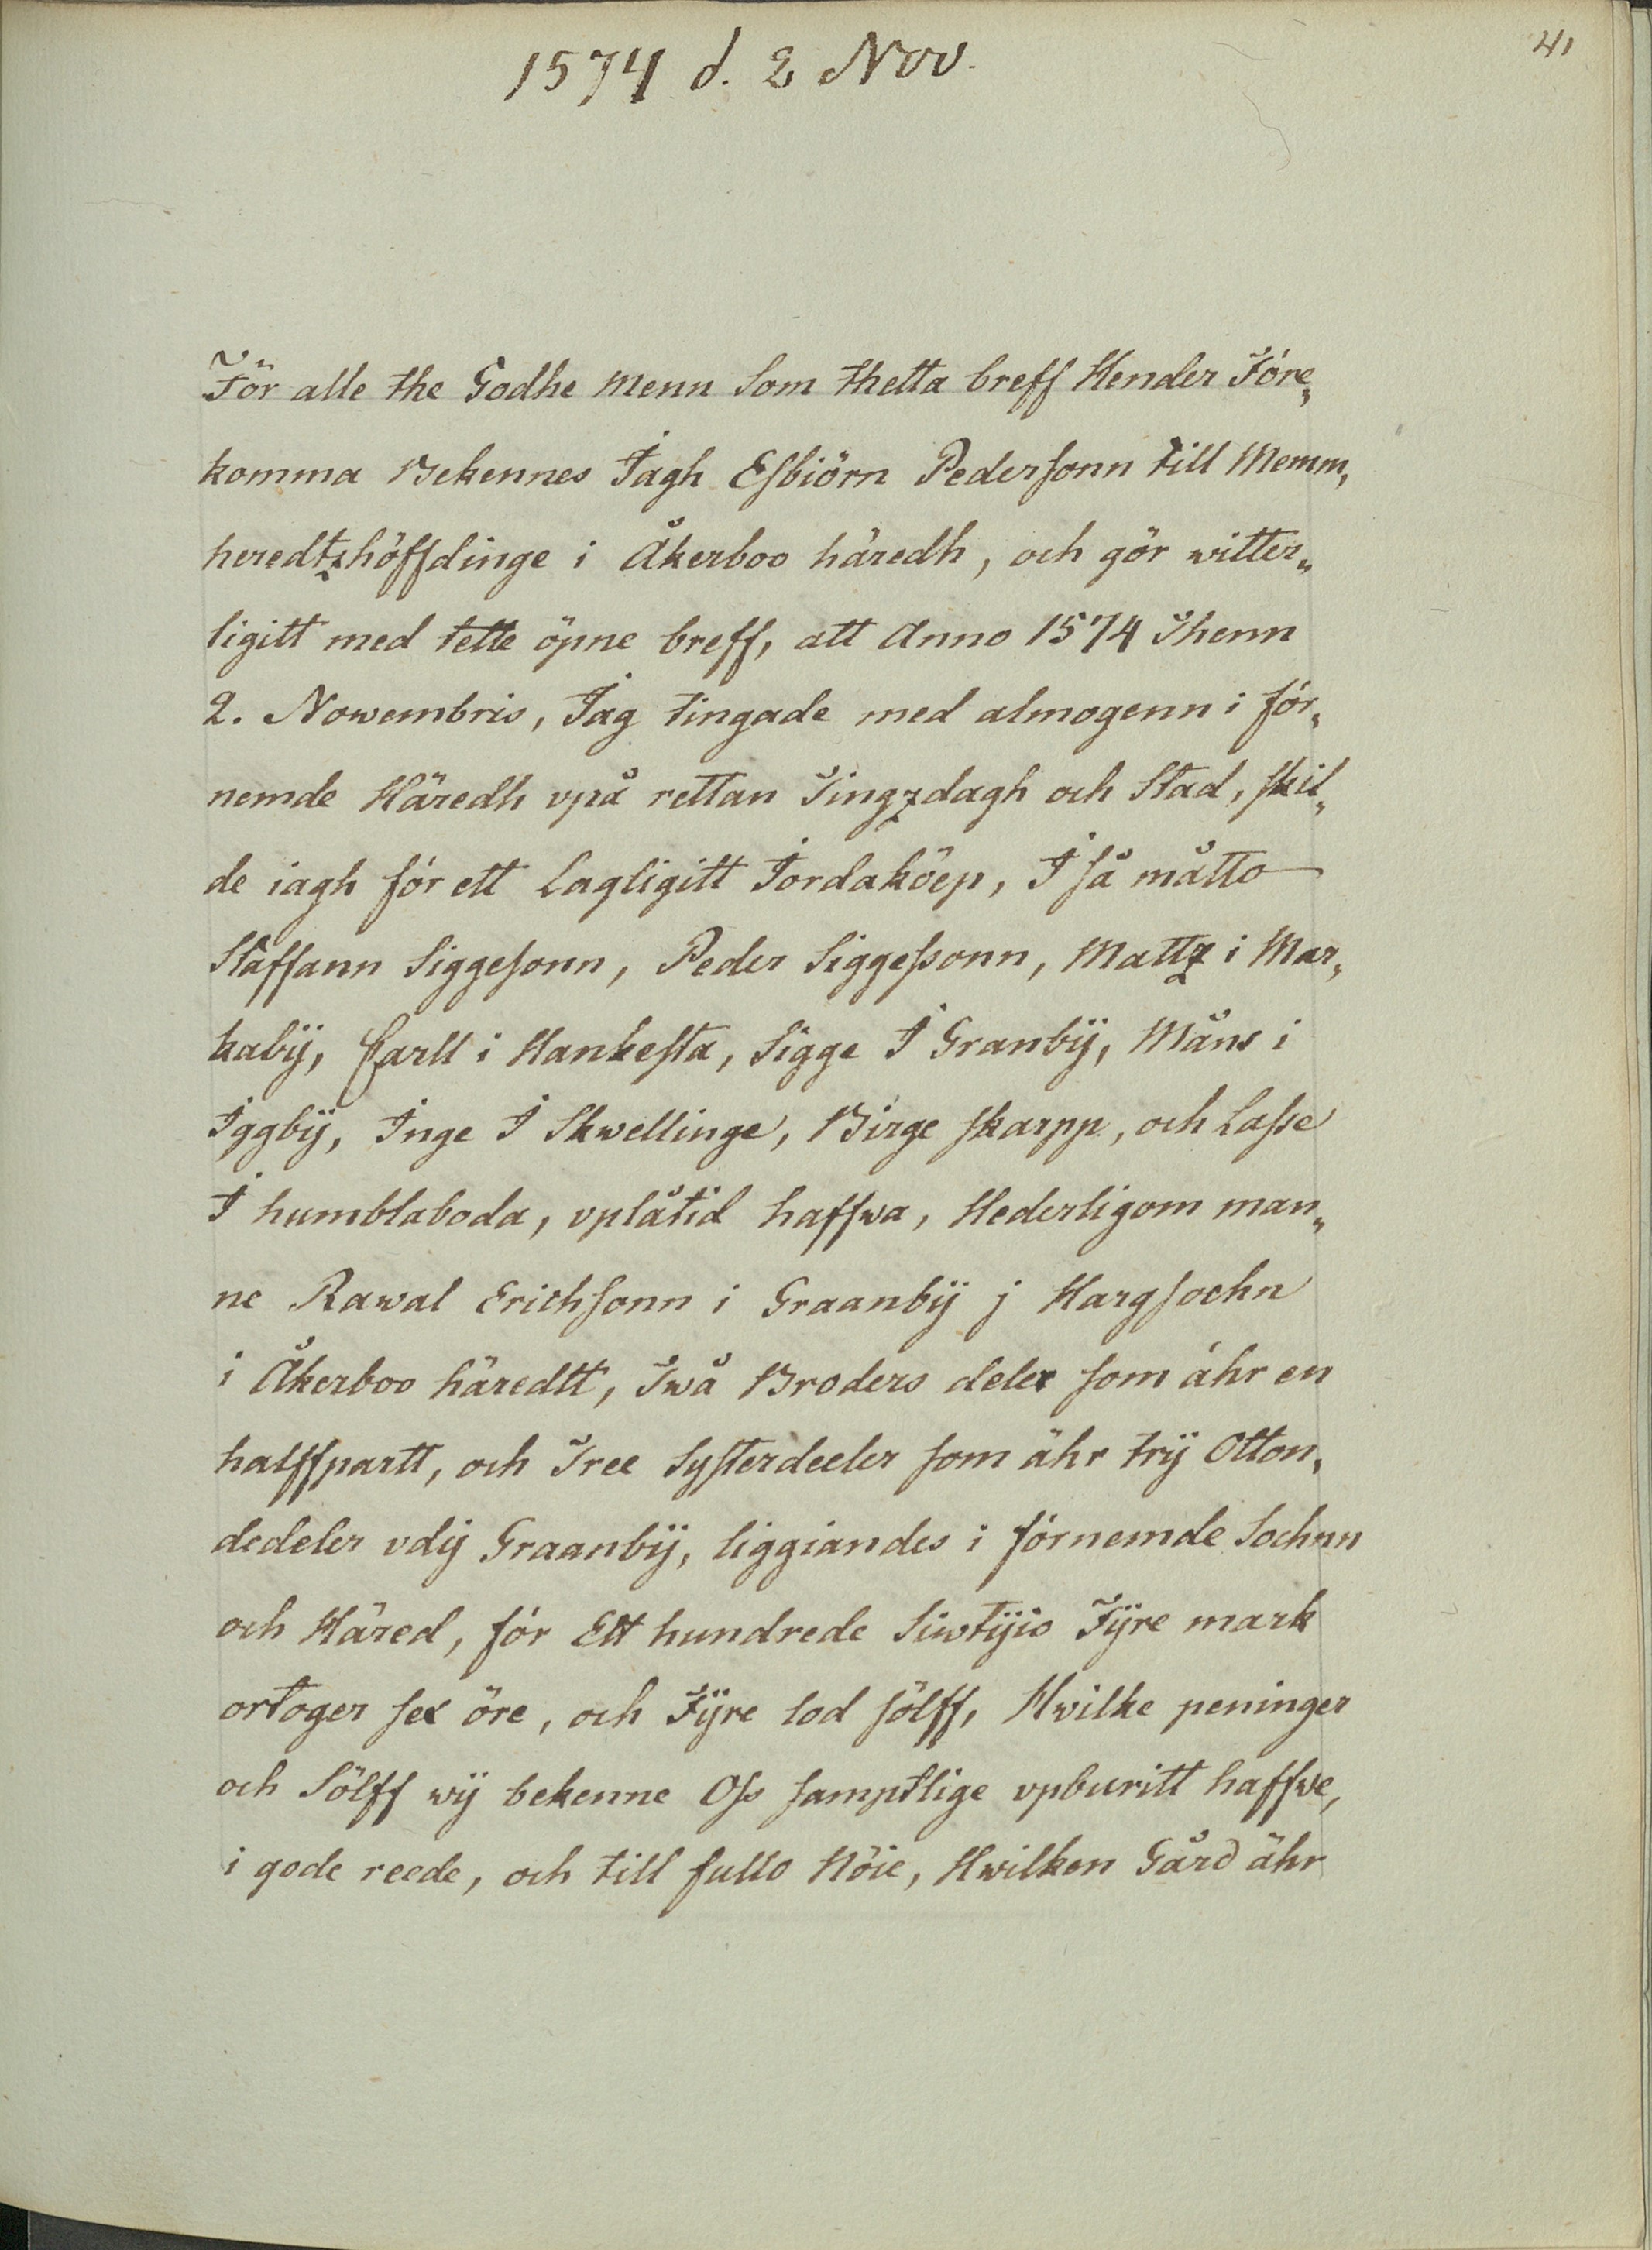 41
1574 d. 2 Nov.
För alle the Godhe menn Som thetta breff Hender Före„
komma Bekennes Jagh Esbiörn Pedersonn till Memm,
heredtzhöffdinge i Åkerboo häredh, och gör witter„
ligitt med tette öpne breff, att Anno 1574 Thenn
2. Nowembris, Jag tingade med almogenn i för„
nemde Häredh vpå rettan Tingzdagh och Stad, skil„
de iagh för ett Lagligitt Jordaköep, I så måtto
Staffann Siggesonn, Peder Siggessonn, Mattz i Mar„
kabÿ, Carll i Hankesta, Sigge I Granbÿ, Måns i
Iggbÿ, Inge I Skwellinge, Birge skarpp, och Lasse
I humblaboda, vplåtid haffwa, Hederligom man„
ne Rawal Erichsonn i Graanbÿ j Hargsochn
i Åkerboo häredtt, Twå Broders deler som ähr en
halffpartt, och Tree Systerdeeler som ähr trÿ Otton„
dedeler vdÿ Graanbÿ, liggiandes i förnemde Sochnn
och Häred, för Ett hundrede Siwtÿio Fÿre mark
ortoger sex öre, och Fÿre lod sölff, Hwilke peninger
och Sölff wÿ bekenne Oss samptlige vpburitt haffwe,
i gode reede, och till fullo Nöie, Hwilken Gård ähr